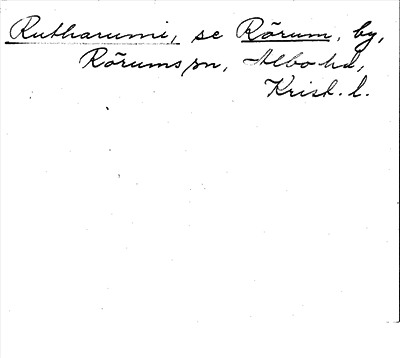 Rutharumi, se Rörum, by,
Rörums sn, Albo hd,
Krist. l.